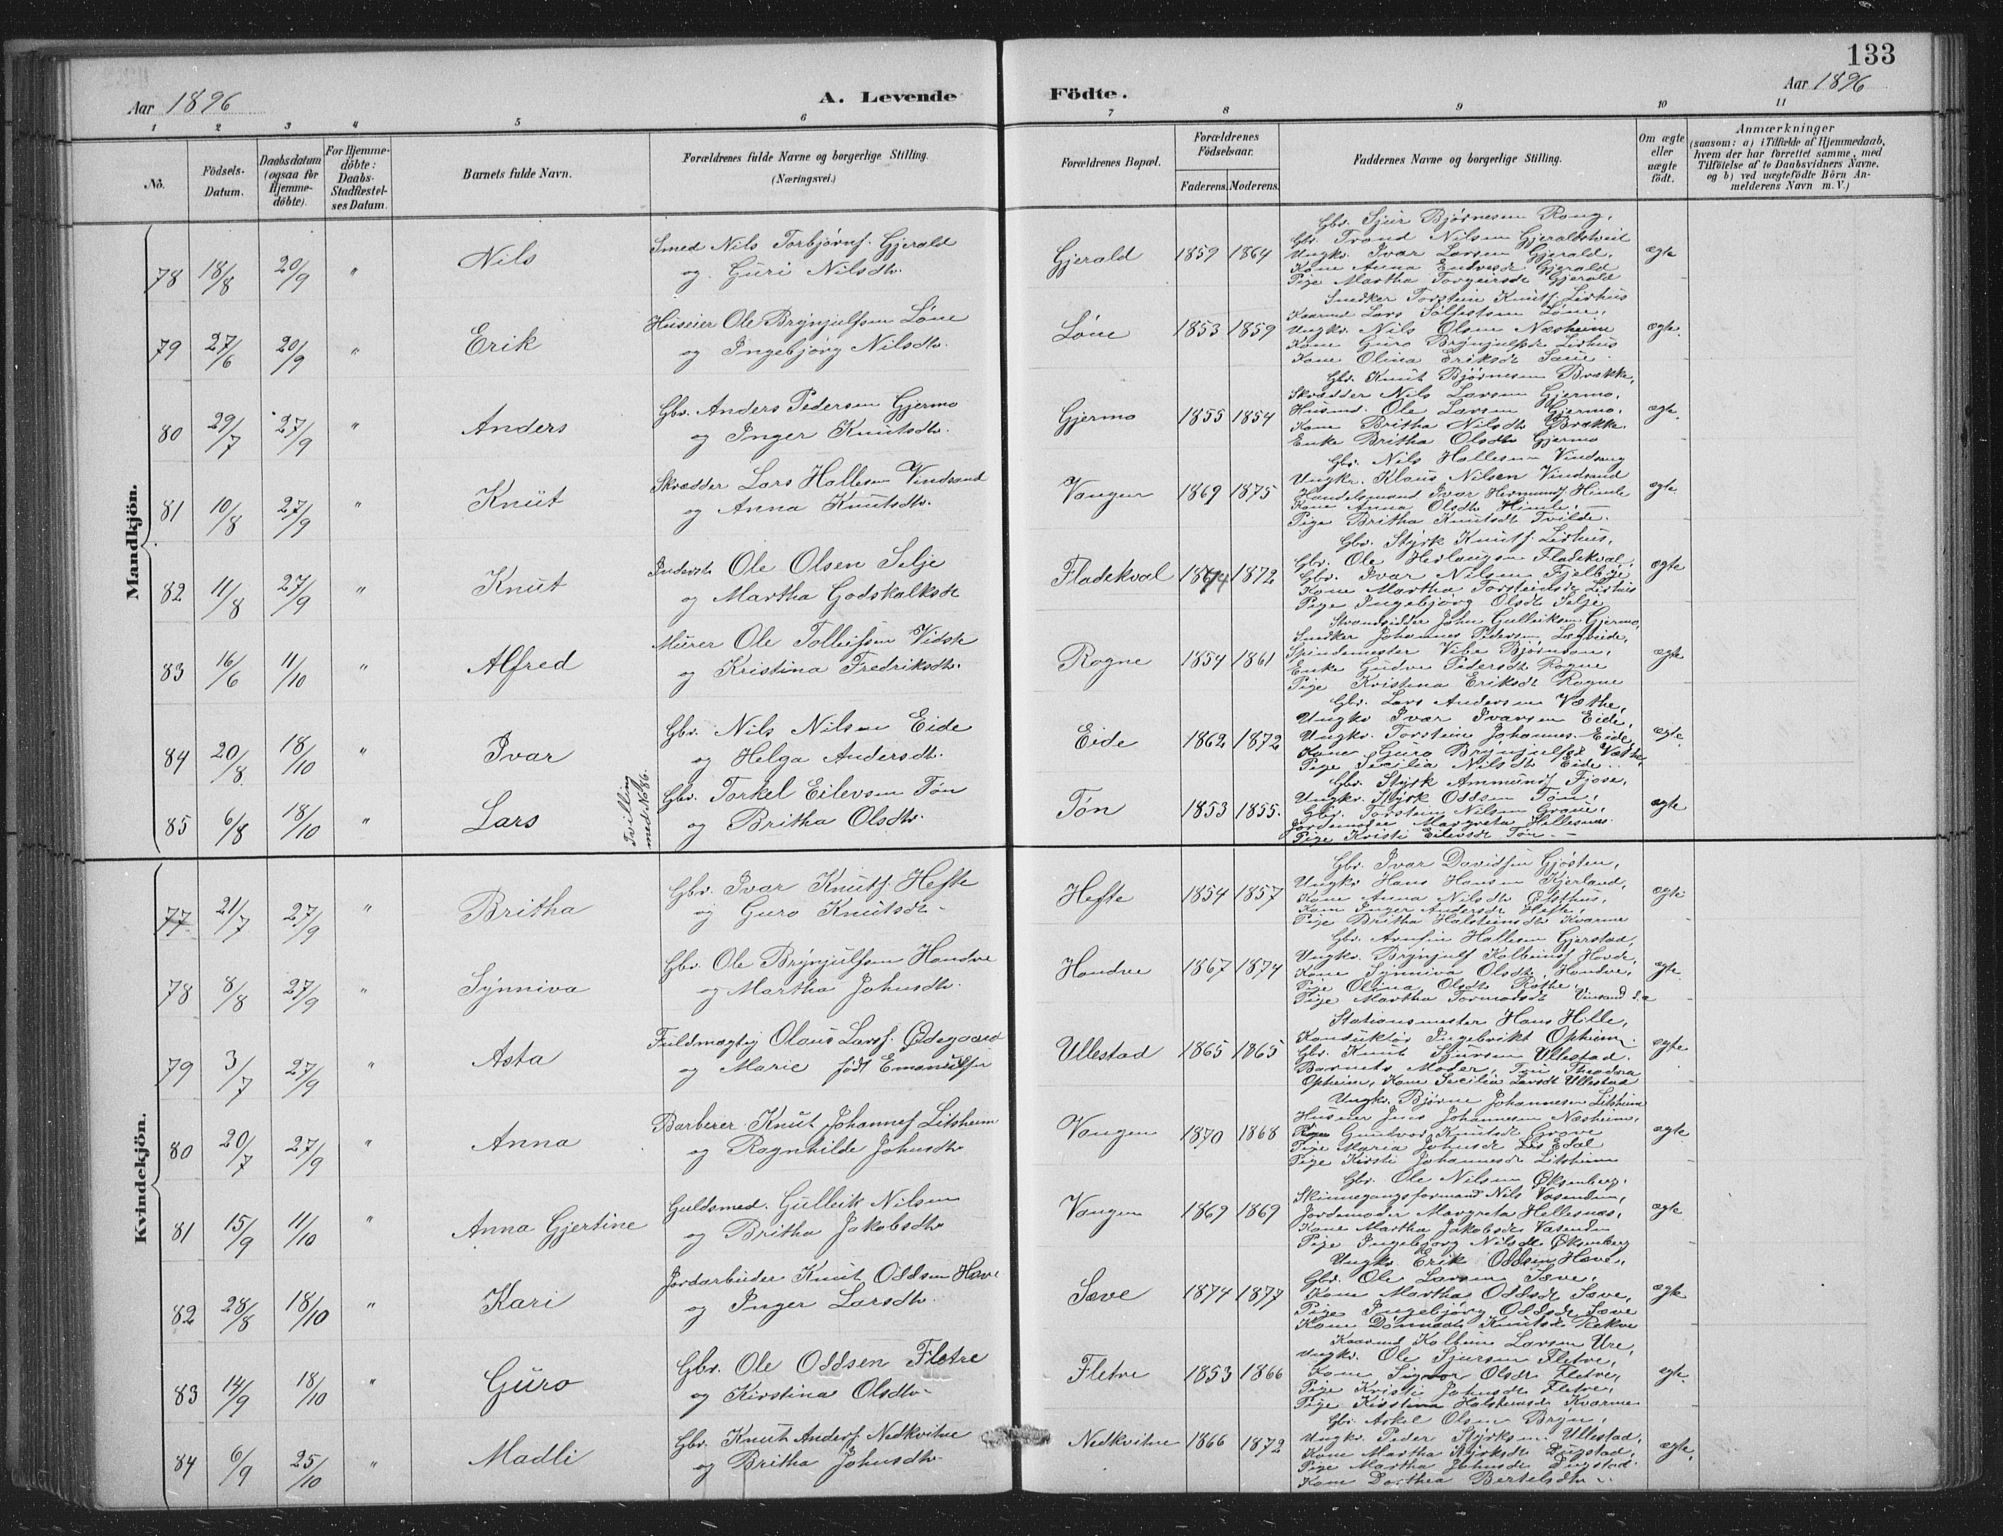 133
Aar 1896
A. Levende Födte.
Aar 1896
1 2 3 4 5 6 7 8 9 10 11
No.
Födsels-Datum.
Daabsdatum (ogsaa for Hjemmedöbte).
For Hjemmedöbte: Daabs-Stadfæstelses Datum.
Barnets fulde Navn.
Forældrenes fulde Navne og borgerlige Stilling. (Næringsvei.)
Forældrenes Bopæl.
Forældrenes Födselsaar.
Faderens. Moderens.
Faddernes Navne og borgerlige Stilling.
Om ægte eller uægte födt.
Anmærkninger
(saasom: a) i Tilfælde af Hjemmedaab, hvem der har forrettet samme, med Tilföielse af to Daabsvidners Navne. og b) ved uægtefödte Börn Anmelderens Navn m. V.)
Mandkjön.
78 18/8 20/9 " Nils
Smed Nils Torbjørns. Gjerald
og Guri Nilsdtr.
Gjerald 1859 1864
Gbr. Sjur Bjørnesen Rong,
Gbr. Trond Nilsen Gjeraldstveit
Ungkr. Ivar Larsen Gjerald,
Kone Anna Gjerald
Pige Martha Torgeirsdt Gjerald
ægte
79 27/6 20/9 " Erik
Huseier Ole Brynjulfsen Løne
og Ingebjørg Nilsdtr.
Løne 1853 1859
Snedker Torstein Knuts. Lirhus
Kaarmd Lars Løne,
Ungkr. Nils Olsen Næsheim
Kone Guro Brynjulfsdt Lirhus
Kone Olina Eriksdt
ægte.
80 29/7 27/9 " Anders
Gbr. Anders Pedersen Gjermo
og Inger Knutsdtr.
Gjermo 1855 1854
Gbr. Knut Bjørnesen Brække,
Skrædder Nils Larsen Gjermo,
Husmd. Ole Larsen Gjermo.
Kone Britha Nilsdtr Brække.
Enke Britha Olsdtr Gjermo
ægte.
81 10/8 27/9 " Knut
Skrædder Lars Hallesen Vindsand
og Anna Knutsdtr.
Vangen 1869 1875
Gbr. Nils Hallesen
Ungkr. Klaus Nilsen Vindsand
Handelsmand Ivar Hermunds. Himle
Kone Anna Olsdtr Himle.
Pige Britha Knutsdt Tvilde.
ægte.
82 11/8 27/9 " Knut
Inderst Ole Olsen Selje
og Martha Godskalksdt
Fladekval 1874 1872
Gbr. Styrk Knuts. Lirhus,
Gbr. Ole Herlaugsen Fladekval,
Gbr. Ivar Nilsen
Kone Martha Torsteinsdt Lirhus
Pige Ingebjørg Olsdt Selje
ægte
83 16/6 11/10 " Alfred
Murer Ole Tolleifsen
og Kristina Fredriksdtr.
Rogne 1854 1861
Strandsidder John Gulleiksen Gjermo,
Snedker Johannes Pedersen
Spindemester Bjørnson,
Enke Gudve Pedersdtr Rogne
Pige Kristina Eriksdt Rogne
ægte
84 20/8 18/10 " Ivar
Gbr. Nils Nilsen Eide
og Helga Andersdtr.
Eide 1862 1872
Gbr. Lars Andersen Væthe,
Ungkr Ivar Ivarsen Eide,
Ungkr. Torstein Johannes. Eide,
Kone Guro Brynjulfsd Væthe,
Pige Secilia Nilsdt Eide.
ægte.
85 6/8 18/10 " Lars
Tvilling med No 86.
Gbr. Torkel Eilevsen Tøn
og Britha Olsdtr.
Tøn 1853 1855.
Gbr. Styrk Ammunds Fjose,
Ungkr. Styrk Oddsen Tøn,
Gbr. Torstein Nilsen Grove,
Jordemoder Margreta Hellesnæs.
Pige Kristi Eilevsdt Tøn.
ægte
Kvindekjön.
77 21/7 27/9 " Britha
Gbr. Ivar Knuts. Hefte
og Guro Knutsdt.
Hefte 1854 1857
Gbr. Ivar Davidsen Gjøsten,
Ungkr. Hans Hansen Kjerland,
Kone Anna Nilsdtr
Kone Inger Andersdt Hefte,
Pige Britha Halsteinsdt Kvarme
ægte
78 8/8 27/9 " Synniva
Gbr. Ole Brynjulfsen Hondve
og Martha Johnsdtr.
Hondve 1867 1874
Gbr. Arnfin Hallesen Gjerstad,
Ungkr. Brynjulf Kolbeins. Hovde,
Kone Synniva Olsdtr. Hondve,
Pige Olina Olsdt Rothe,
Pige Martha Tormodsdt
ægte.
79 3/7 27/9 " Asta
Fuldmægtig Olaus Lars. Ødegaard
og Marie født Emanuelsen
Ullestad 1865 1865
Stationsmester Hans Hille,
Konduktør Ingebrikt Opheim.
Gbr. Knut Sjursen Ullestad.
Barnets Moder, Fru Theodora
Opheim, Kone Secilia Larsdt Ullestad
ægte.
80 20/7 27/9 " Anna
Barberer Knut Johannes Litsheim
og Ragnhilde Johnsdtr
Vangen 1870 1868
Ungkr. Bjørne Johannesen Litsheim
Huseier Jens Johannesen Næsheim,
Pige Guntvor Knutsdt Grove
Pige Maria Johnsdt Edal
Pige Kirsti Johannesdt Litsheim
ægte
81 15/9 11/10 " Anna Gjertine
Guldsmed. Gulleik Nilsen
og Britha Jakobsdtr
Vangen 1869 1869
Gbr. Ole Nilsen Øksenberg.
Skinnegangsformand Nils Vasenden,
Jordemoder Margreta Hellesnæs.
Kone Martha Jakobsdt Vasenden
Pige Ingebjørg Nilsdt Øksenberg
ægte
82 28/8 18/10 " Kari
Jordarbeider Knut Oddsen Hæve
og Inger Larsdtr
Sæve 1874 1877
Ungkr. Erik Oddsen Hæve,
Gbr. Ole Larsen Sæve,
Kone Martha Oddsdt Sæve,
Pige Ingebjørg Oddsdt Sæve
Kone Knutsdt Rekve
ægte
83 14/9 18/10 " Guro
Gbr. Ole Oddsen Fletre
og Kirstina Olsdtr.
Fletre 1853 1866
Kaarmd Kolbein Larsen Ure,
Ungkr. Ole Sjursen Fletre,
Kone Olsdt Fletre,
Pige Kristi Johnsdt Fletre,
Pige Kirstina Halsteinsdt Kvarme
ægte.
84 6/9 25/10 " Madli
Gbr. Knut Anders. Nedkvitne
og Britha Johnsdtr.
Nedkvitne 1866 1872
Gbr. Askel Olsen Bryn,
Ungkr. Peder Styrksen Ullestad,
Kone Martha Styrksdt Dugstad,
Pige Martha Johnsdt Dugstad
Kone Dorthea Bertelsdtr
ægte.